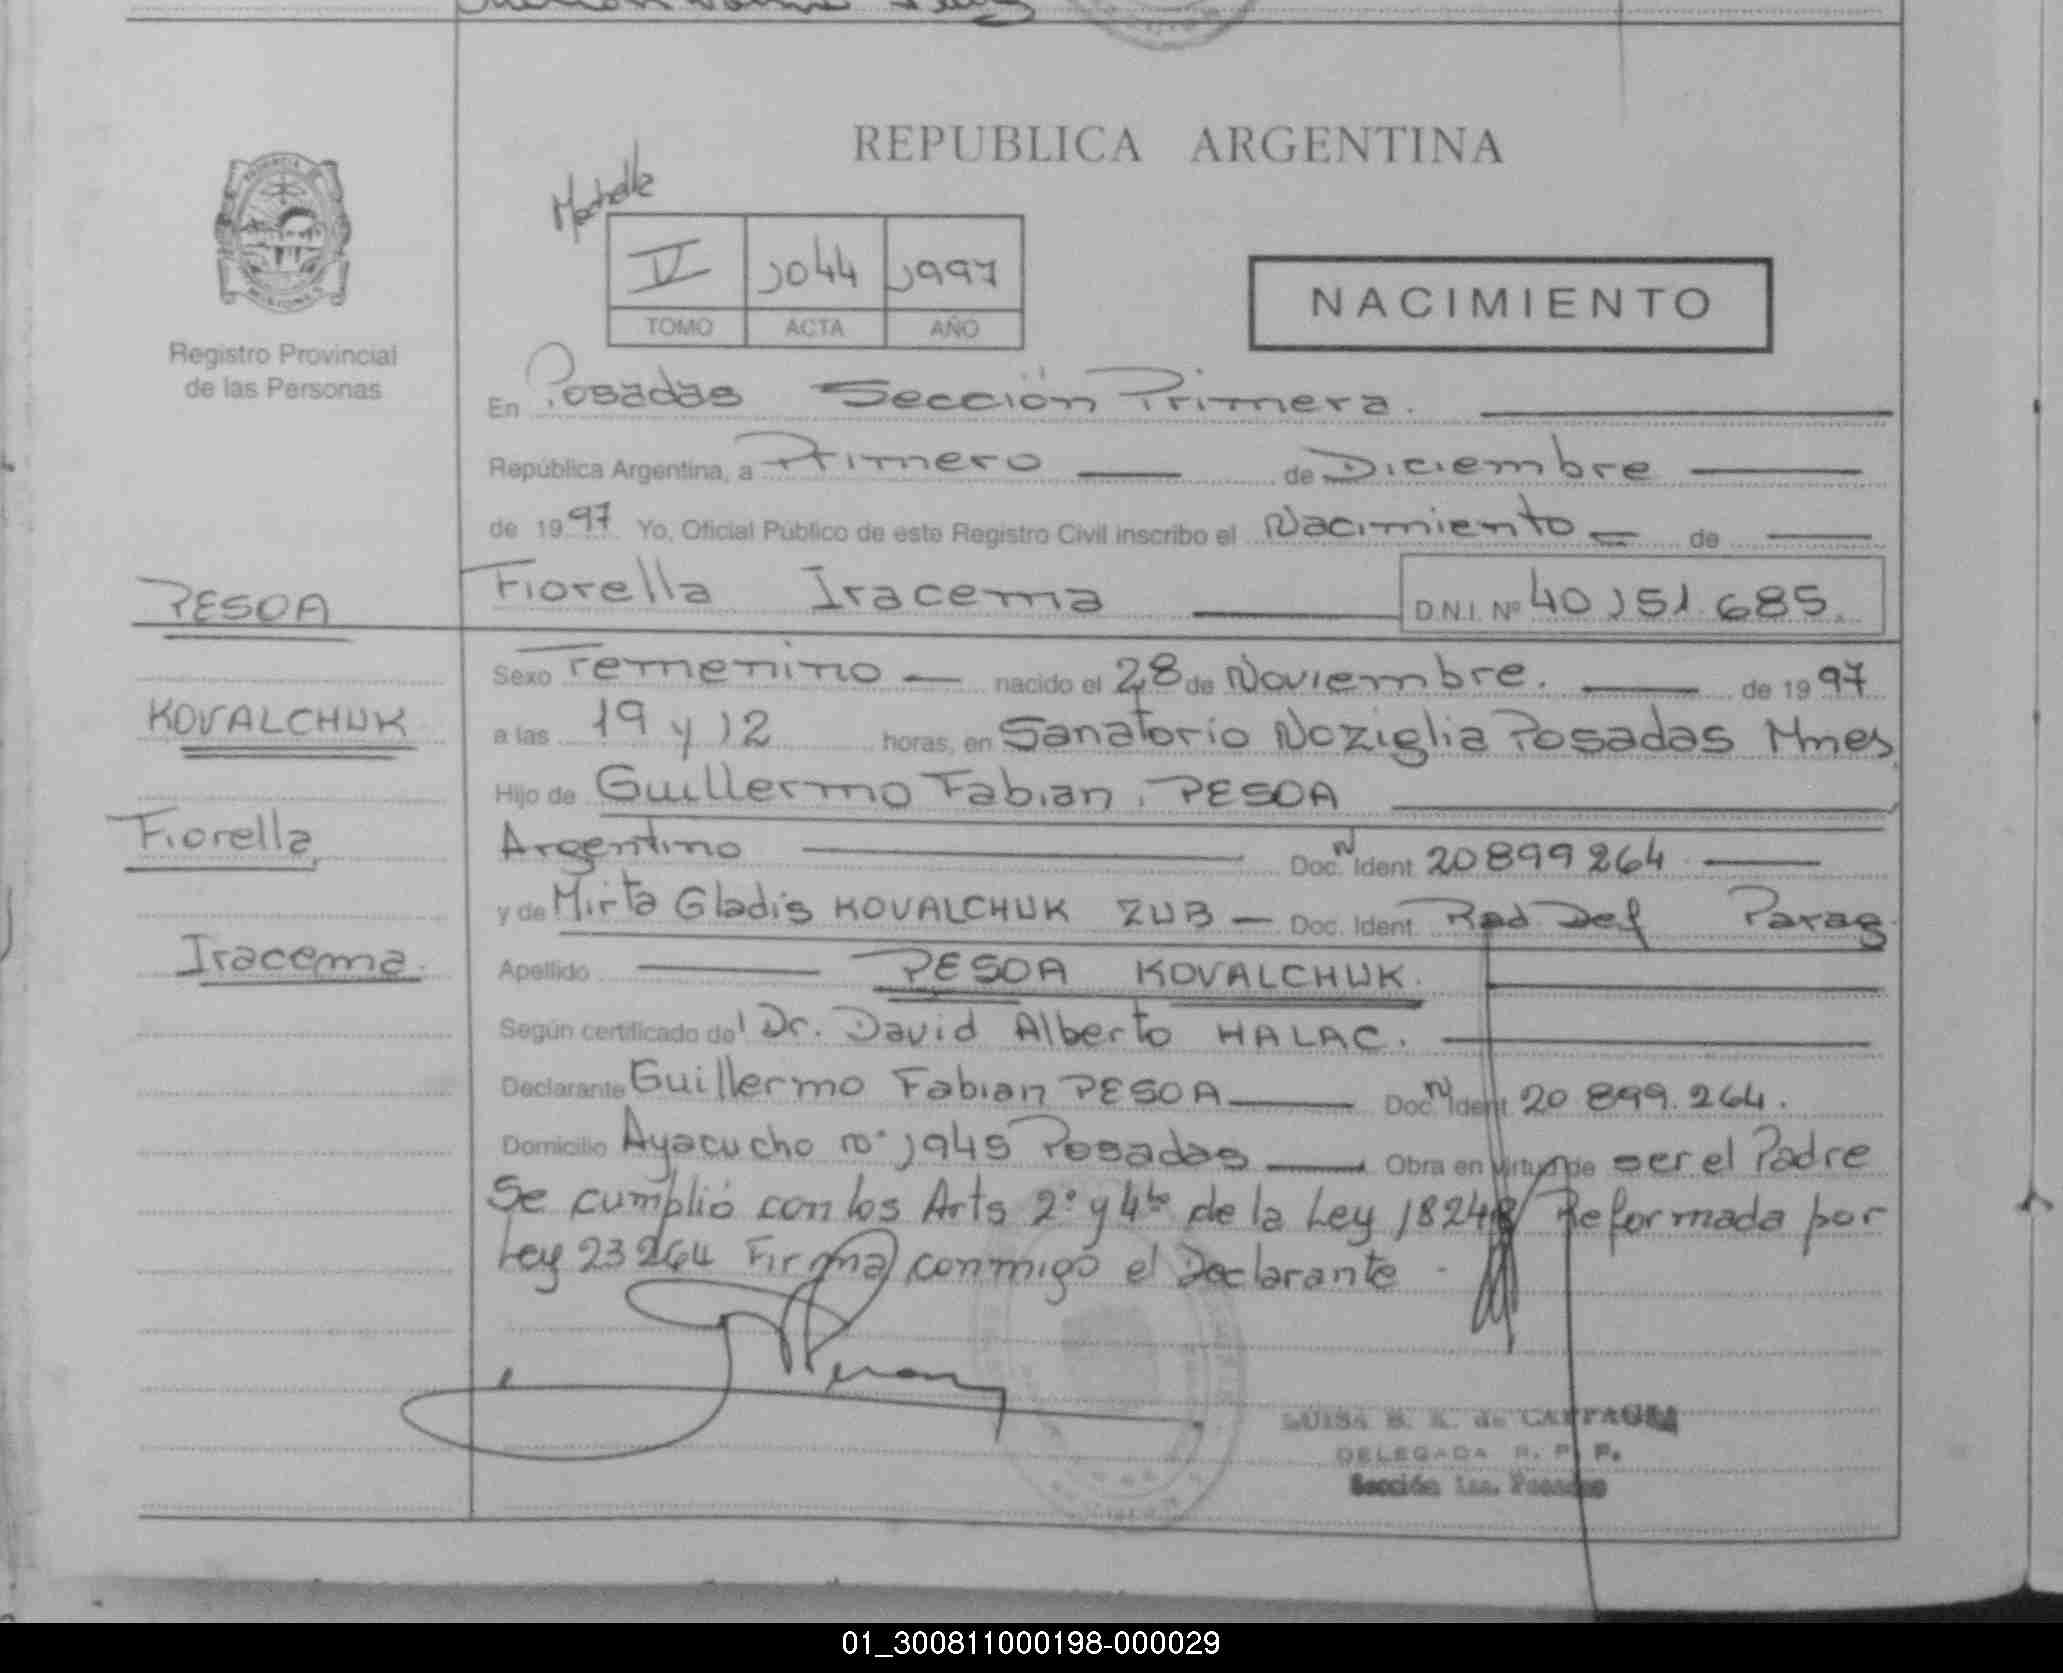 REPUBLICA ARGENTINA
IV 1044 1997
TOMO ACTA AÑO
NACIMIENTO
Registro Provincial
de las Personas
En Posadas Sección Primera.
República Argentina, a Primero de Diciembre
de 1997 Yo, Oficial Público de este Registro Civil inscribo el Nacimiento de
PESOA
Fiorella Iracema D.N.I. Nº 40 151.685.
Sexo Femenino nacido el 28 de Noviembre. de 1997
KOVALCHUK
a las 19 y 12 horas, en Sanatorio Noziglia Posadas Mnes
Hijo de Guillermo Fabian PESOA
Fiorella
Argentino Doc. N Ident 20899264
y de Mirta Gladis KOVALCHUK ZUB Doc. Ident. Rad Def Parag
Iracema.
Apellido PESOA KOVALCHUK.
Según certificado del Dr. David Alberto HALAC.
Declarante Guillermo Fabian PESOA Doc. N Ident 20 899.264.
Domicilio Ayacucho nº 1945 Posadas Obra en virtud de ser el Padre
Se cumplió con los Arts 2º y 4to de la Ley 18248 Reformada por
Ley 23264 Firma conmigo el Declarante
LUISA B. K. de
DELEGADA R. P. P.
Sección 1ra. Posadas
01_300811000198-000029